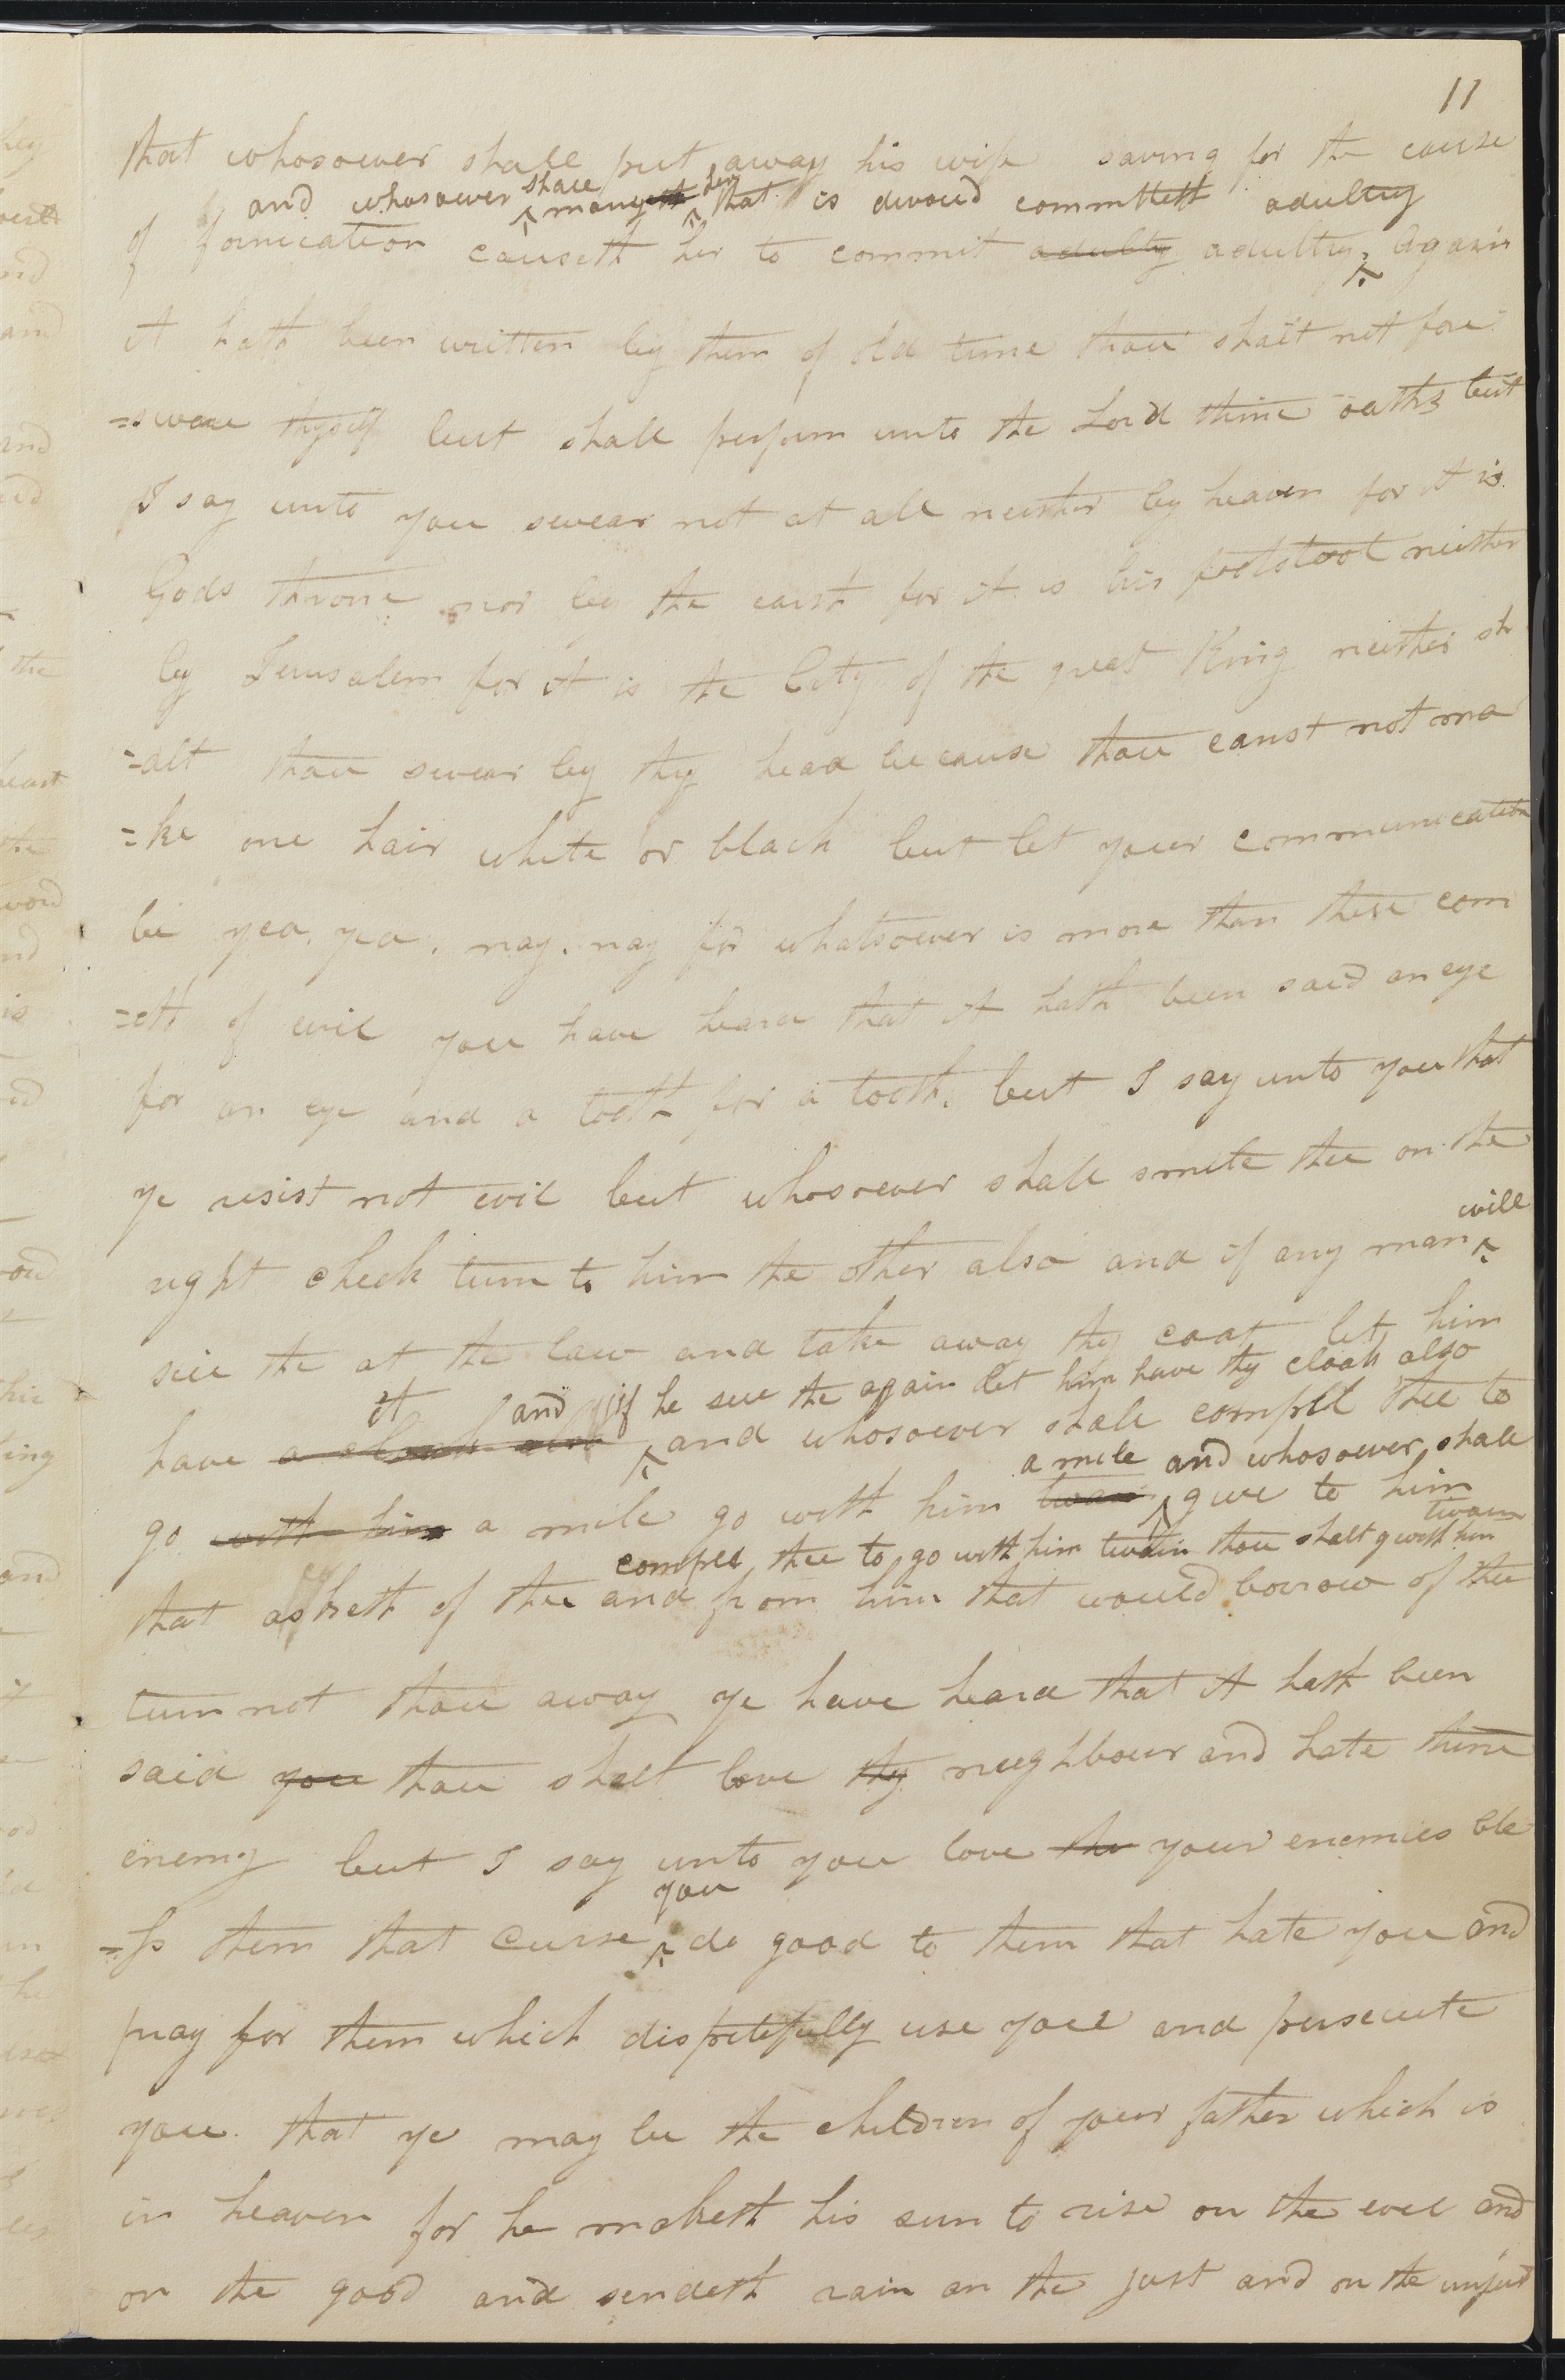 11
that whosoever shall put away his wife saving for the cause
and whosoever shall marry her that is divorced committeth adultery
of fornication causeth her to commit adultry adultry, Again
it hath been written by them of old time thou shalt not fore
=swear thyself but shall perform unto the Lord thine oaths but
I say unto you swear not at all neither by heaven for it is
Gods throne nor by the earth for it is his footstool neither
by Jerusalem for it is the City of the great King neither sh
=alt thou swear by thy head because thou canst not ma
=ke one hair white or black but let your communication
be yea, yea, nay, nay for whatsoever is more than these com
=eth of evil you have heard that it hath been said an eye
for an eye and a tooth for a tooth, but I say unto you that
ye resist not evil but whosoever shall smite thee on the
will
right cheek turn to him the other also and if any man ^
sue the at the law and take away thy coat let him
it and if he sue the again let him have thy cloak also
have a cloak also ^ and whosoever shall compell thee to
a mile and whosoever shall
go with him a mile go with him twain ^ give to him
compell thee to go with him twain thou shalt go with him twain
that asketh of thee and from him that would borrow of thee
turn not thou away ye have heard that it hath been
said you thou shalt love thy neighbour and hate thine
enemy but I say unto you love the your enemies ble
you
=ss them that curse ^ do good to them that hate you and
pray for them which dispitefully use you and persecute
you. that ye may be the children of your father which is
in heaven for he maketh his sun to rise on the evil and
on the good and sendeth rain on the just and on the unjust